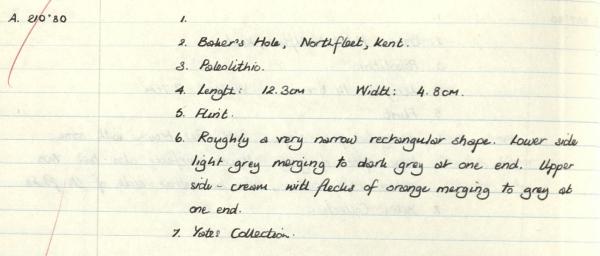 A. 210'80 1.
2. Baker's Hole, Northfleet, Kent.
3. Paleolithic.
4. Length: 12.3cm Width: 4.8cm.
5. Flint.
6. Roughly a very narrow rectangular shape. Lower side
light grey merging to dark grey at one end. Upper
side - cream with flecks of orange merging to grey at
one end.
7. Yates Collection.